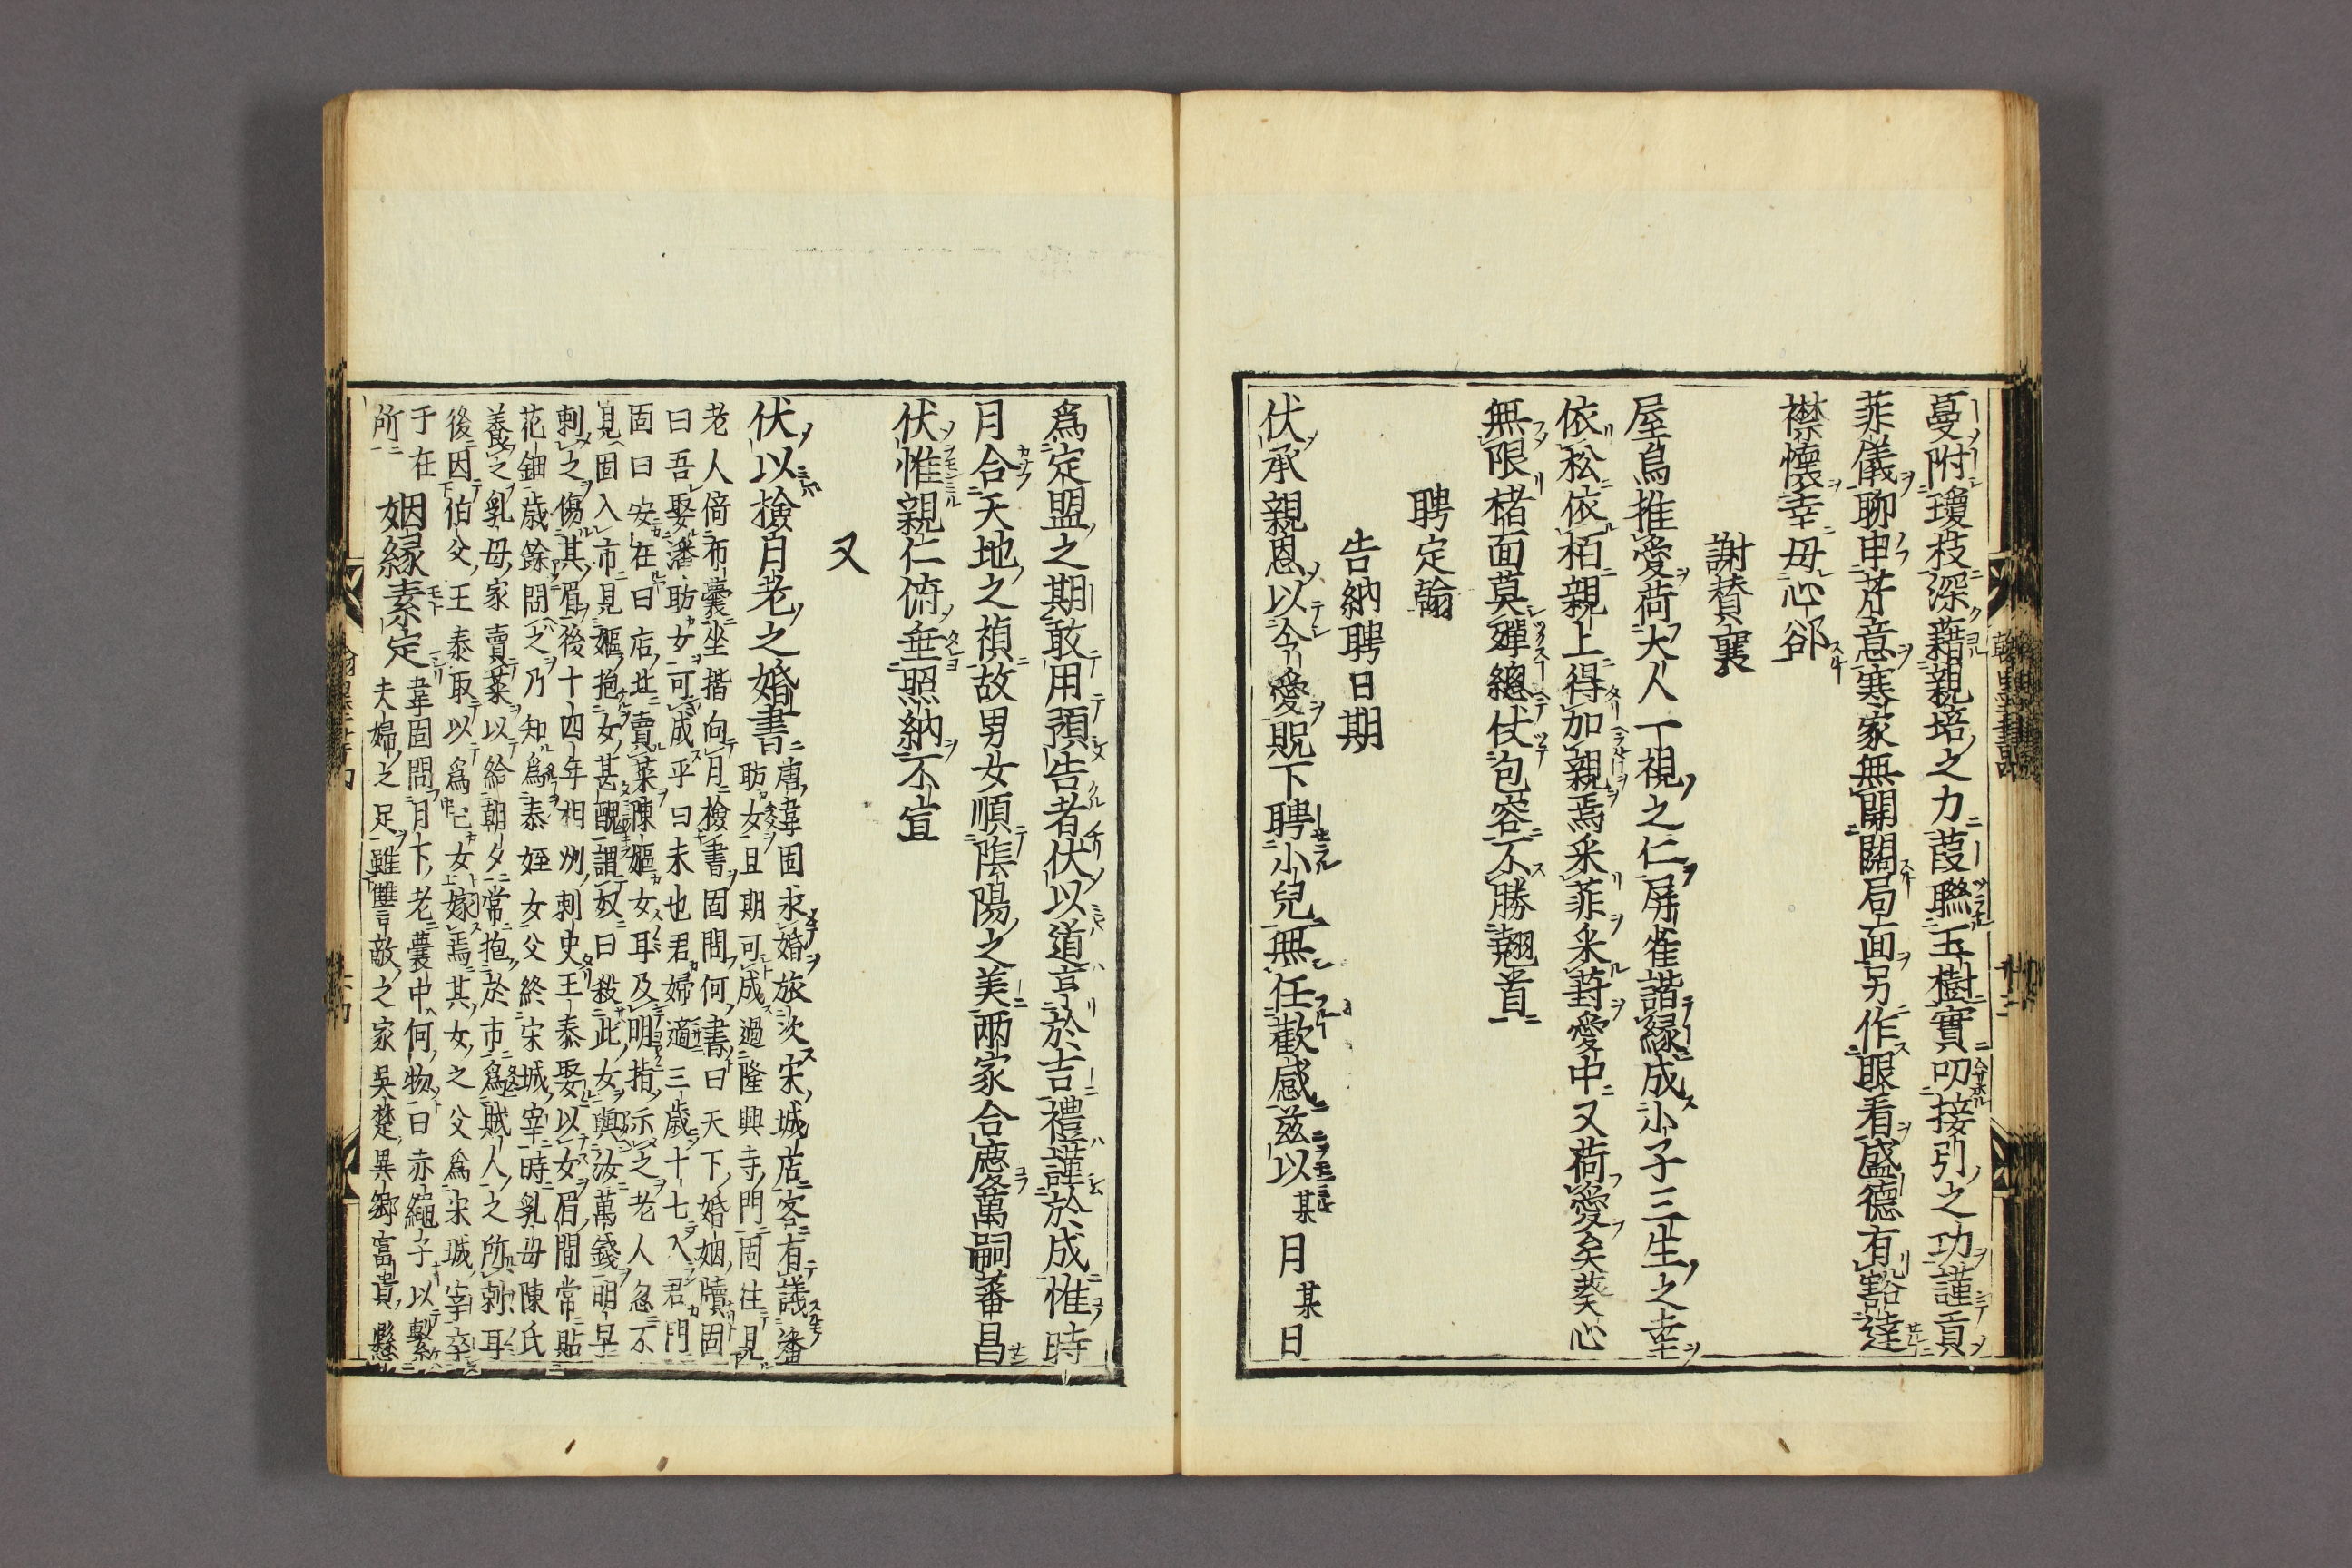 蔓附瓊枝深藉親培之力葭聮玉樹實叨接引之功謹貢
菲儀聊申芹意寒家無開闊局面另作眼看盛德有豁達
襟懷幸毋心郤
謝賛襄
屋烏推愛荷大人一視之仁屏雀諧緣成小子三生之幸
依松依栢親上得加親焉采菲采葑愛中又荷愛矣葵心
無限楮面莫殫緫仗包容不勝翹首
聘定翰
告納聘日期
伏承親恩以令愛貺下聘小兒無任歡感兹以某月某日
爲定盟之期敢用預告者伏以道言於吉禮謹於成惟時
月合天地之禎故男女順隂陽之美兩家合慶萬嗣蕃昌
伏惟親仁俯垂照納不宣
又
伏以檢月老之婚書
唐韋固求婚旅次宋城店客有議潘
昉女且期可成過隆興寺門固往見
老人倚布囊坐揩向月檢書固問何書曰天下婚姻牘固
曰吾娶潘昉女可成乎曰未也君婦適三歲十七入君門
固曰安在曰店北賣菜陳嫗女耳及明指示之老人忽不
見固入市見嫗抱女甚醜謂奴曰殺此女與汝萬錢明早
刺之傷其眉後十四年相州刺史王泰娶以女眉間常貼
花鈿歳餘問之乃知爲泰姪女父終宋城宰時乳母陳氏
養之乳母家賣菜以給朝夕常抱於市爲賊人之所刺耳
後因伯父王泰取以爲己女嫁焉其女之父爲宋城宰卒
于在
所
姻緣素定
韋固問月下老囊中何物曰赤繩子以繫
夫婦之足雖讐敵之家吳楚異鄉富貴懸